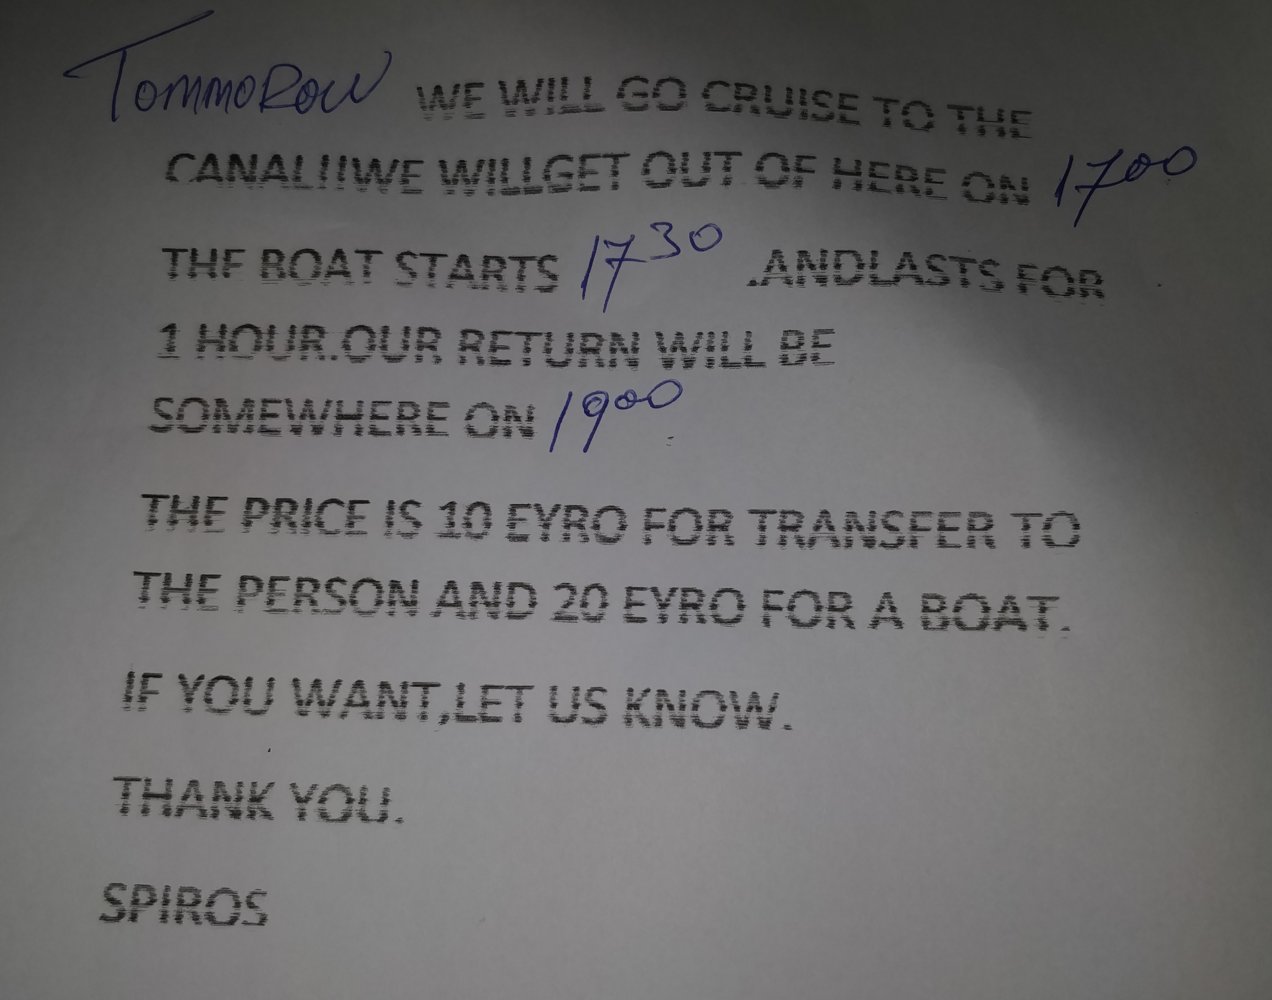 TOMMOROW WE WILL GO CRUISE TO THE
CANAL!!WE WILLGET OUT OF HERE ON 1700
THE BOAT STARTS 1730 .ANDLASTS FOR
1 HOUR.OUR RETURN WILL BE
SOMEWHERE ON 1900
THE PRICE IS 10 EYRO FOR TRANSFER TO
THE PERSON AND 20 EYRO FOR A BOAT.
IF YOU WANT,LET US KNOW.
THANK YOU.
SPIROS